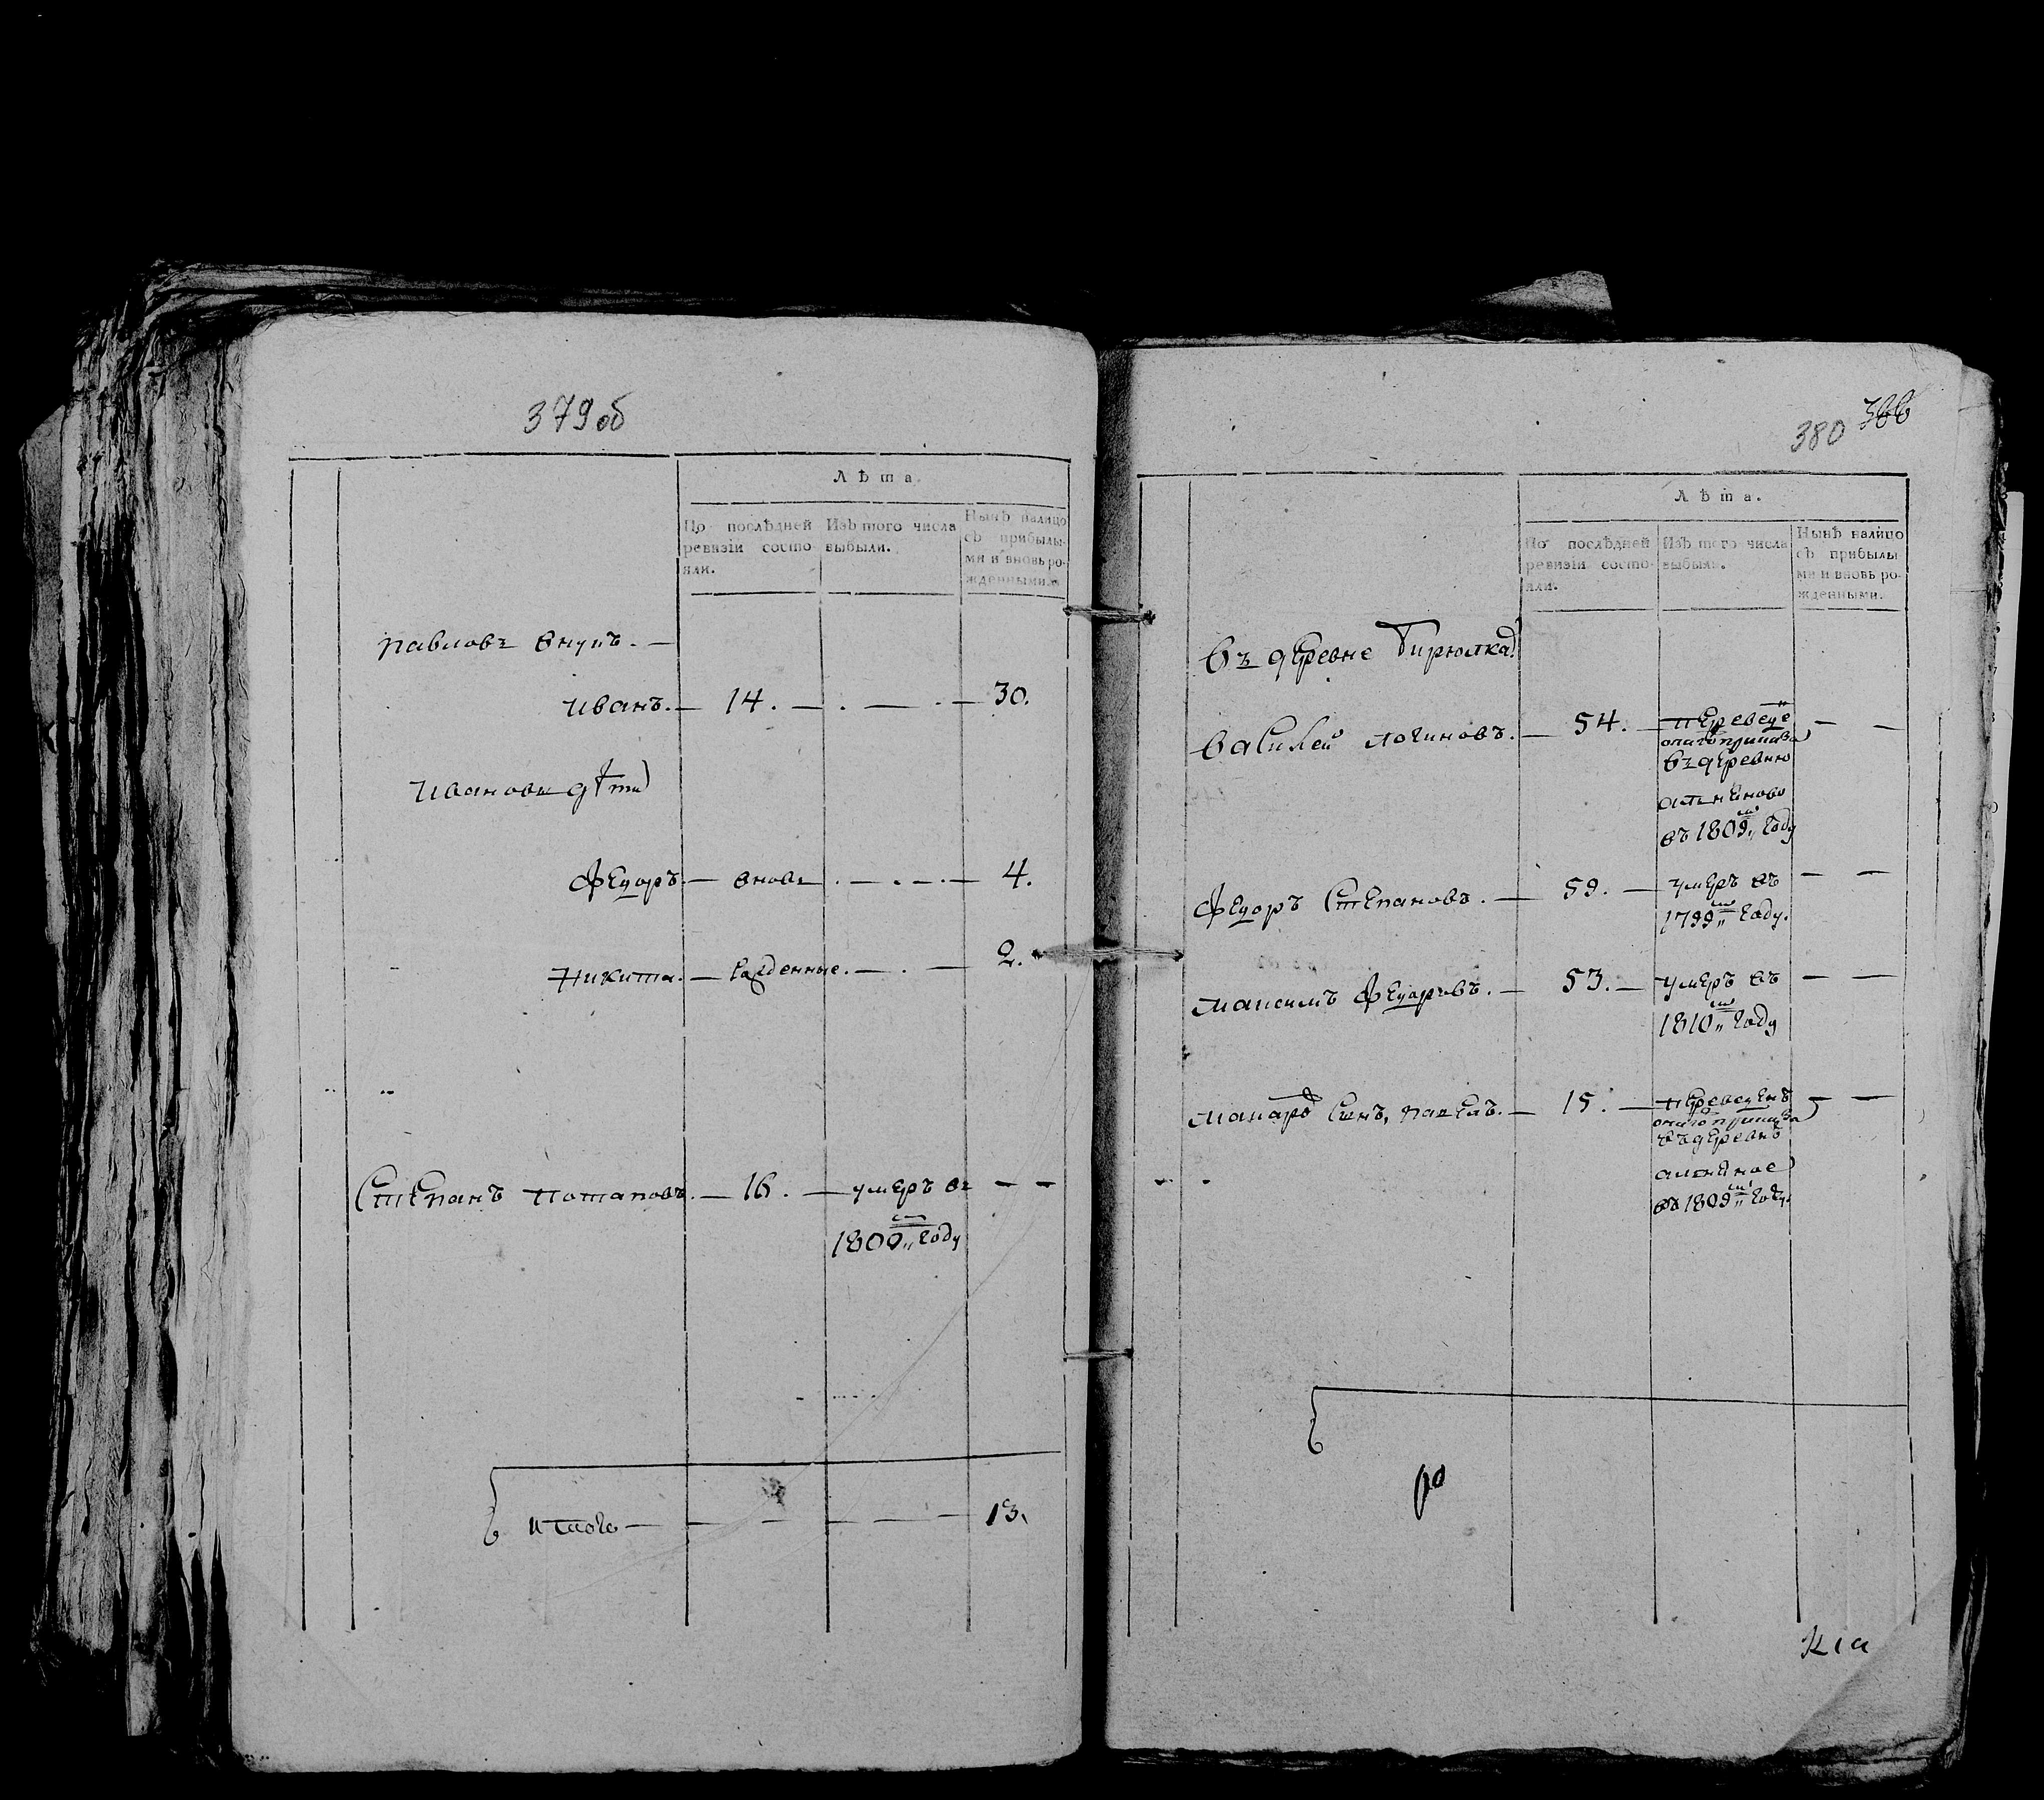 379 об
Лѣта.
По послѣдней ревизіи состояли.
Изъ того числа выбыли.
Нынѣ налицо съ прибылыми и вновь рожденными.
павловъ внукъ. —
иванъ. — 14. — . — . — 30.
ивановы дѣти
Федоръ. — вновь . — . — . — 4.
Никита. — рожденные. — . — 2.
Степанъ Потаповъ. — 16. — умеръ въ — —
1800,, году
итого — — — — — 13.
380
Лѣта.
По послѣдней ревизіи состояли.
Изъ того числа выбыли.
Нынѣ налицо съ прибылыми и вновь рожденными.
въ деревне Бирюлка
Василей Логиновъ. — 54. — переведе — —
въ деревню
въ 1809,, году
Федоръ Степановъ. — 59. — умеръ въ — —
1799,, году.
Максимъ Федоровъ. — 53. — умеръ въ — —
1810,, году
сынъ, павелъ. — 15. — переведенъ — —
въ 1809,, году.